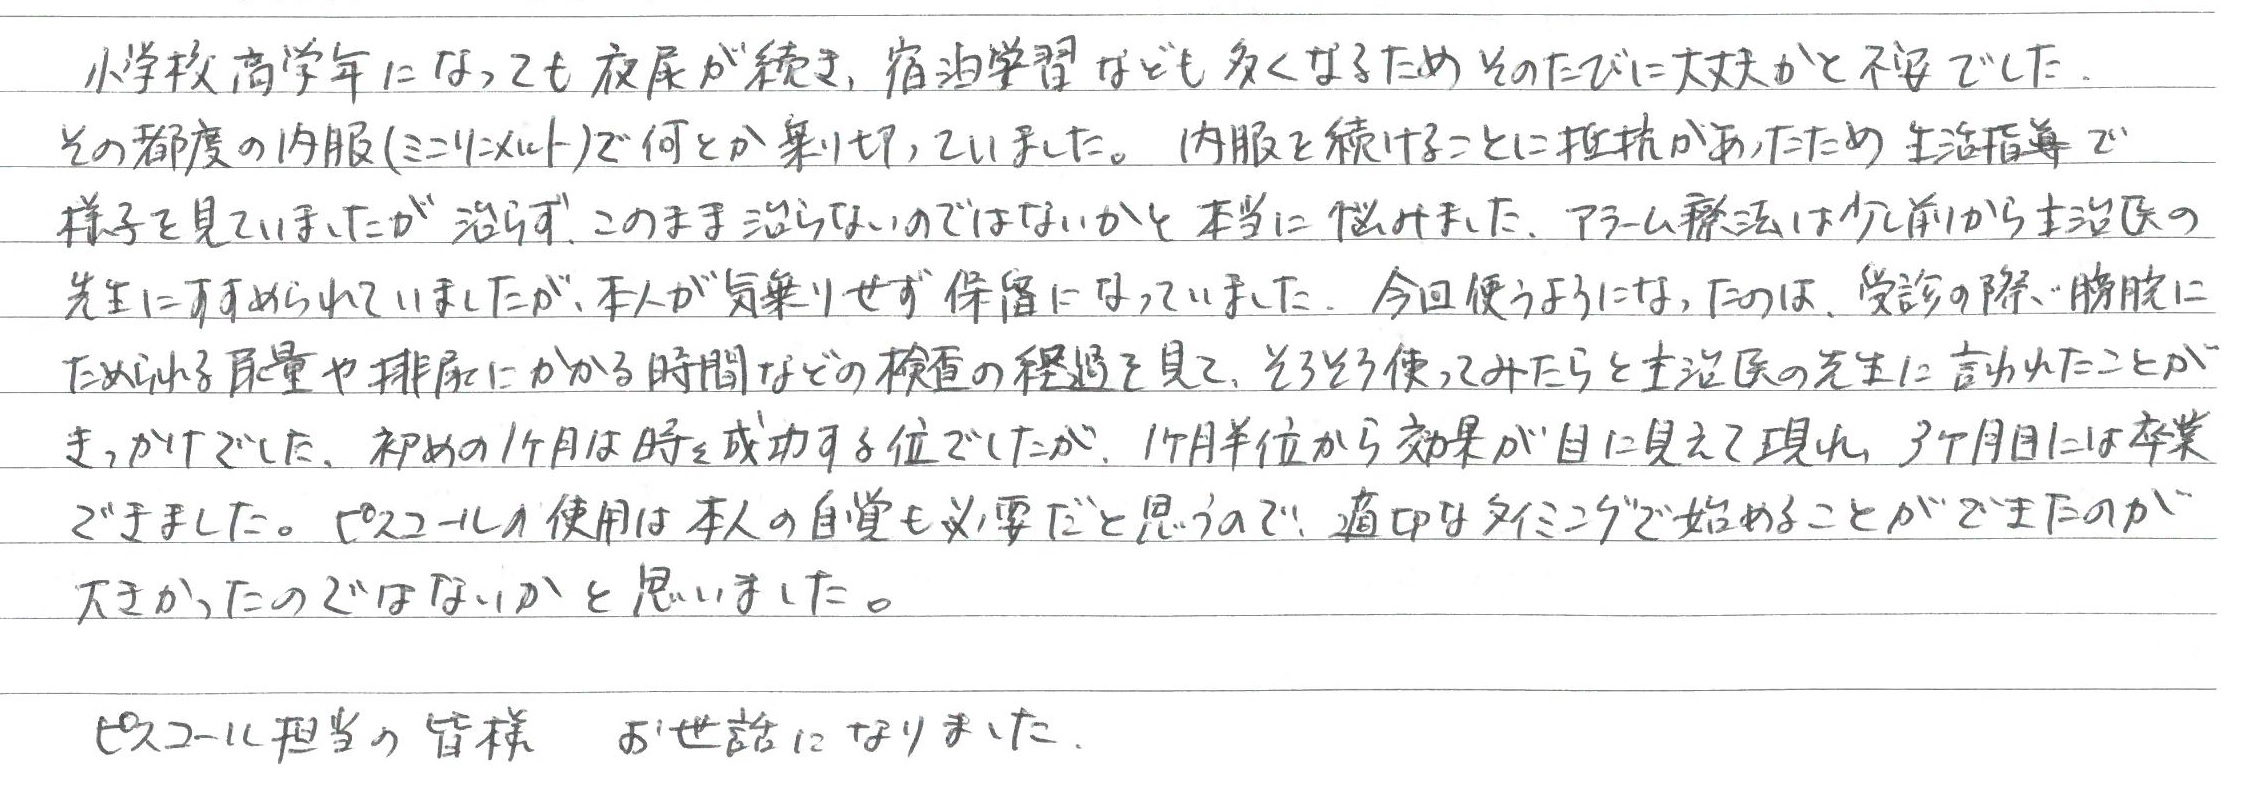 小学校高学年になっても夜尿が続き、宿泊学習なども多くなるためそのたびに大丈夫かと不安でした.
その都度の内服(ミニリンメルト)で何とか乗り切っていました。 内服を続けることに抵抗があったため生活指導で
様子を見ていましたが治らず、このまま治らないのではないかと本当に悩みました、アラーム療法は少し前から主治医の
先生にすすめられていましたが、本人が気乗りせず保留になっていました. 今回使うようになったのは、受診の際、膀胱に
ためられる尿量や排尿にかかる時間などの検査の経過を見て、そろそろ使ってみたらと主治医の先生に言われたことが
きっかけでした、初めの1ケ月は時々成功する位でしたが、1ケ月半位から効果が目に見えて現れ、3ケ月目には卒業
できました。ピスコールの使用は本人の自覚も必要だと思うので、適切なタイミングで始めることができたのが
大きかったのではないかと思いました。
ピスコール担当の皆様 お世話になりました.